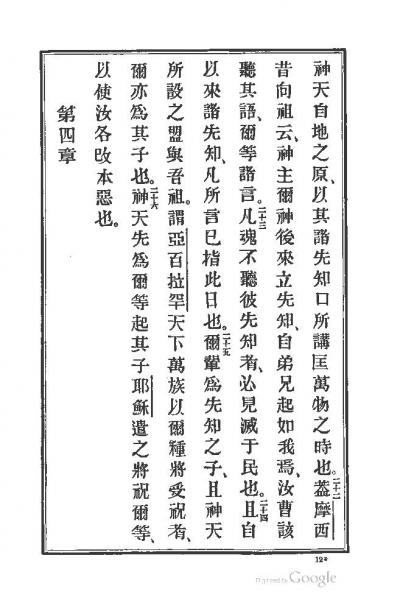 神天自地之原、以其諸先知口所講匡萬物之時也。二十二蓋摩西
昔向祖云、神主爾神後來立先知、自弟兄起如我焉、汝曹該
聽其語、爾等諸言。二十三凡魂不聽彼先知者、必見滅于民也。二十四且自
以來諸先知、凡所言已指此日也。二十五爾輩爲先知之子、且神天
所設之盟與吾祖、謂亞百拉罕天下萬族以爾種將受祝者、
爾亦爲其子也。二十六神天先爲爾等起其子耶穌遣之將祝爾等、
以使汝各改本惡也。
第四章
12*
Digitized by Google